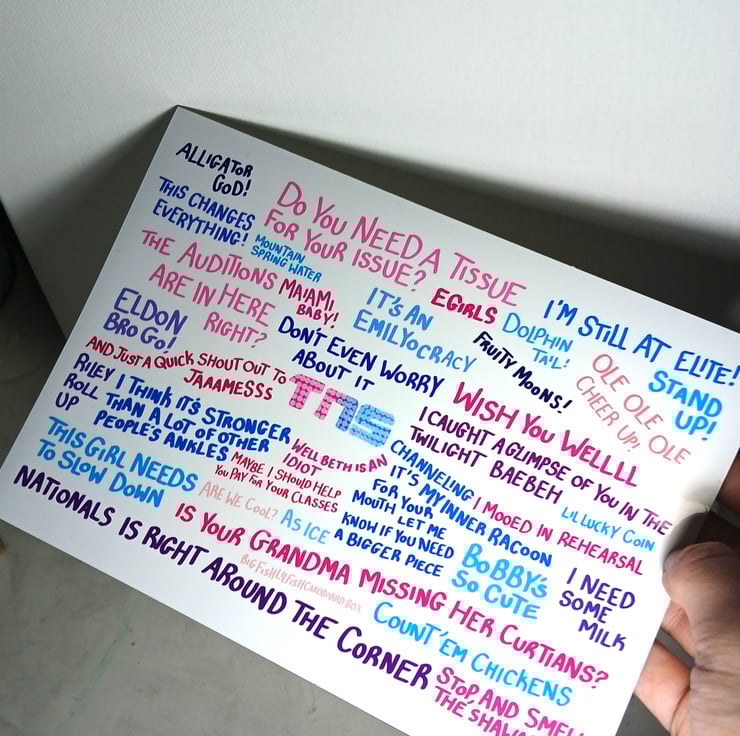 ALLIGATOR
GOD!
THIS CHANGES
EVERYTHING!
DO YOU NEED A TISSUE
FOR YOUR ISSUE?
MOUNTAIN
SPRING WATER
THE AUDITIONS
ARE IN HERE
RIGHT?
MAIAMI,
BABY!
IT'S AN
EMILYOCRACY
EGIRLS
DOLPHIN
TAIL!
I'M STILL AT ELITE!
STAND
UP!
ELDON
BRO GO!
DON'T EVEN WORRY
ABOUT IT
FRUITY MOONS!
OLE OLE OLE
CHEER UP!
AND JUST A QUICK SHOUT OUT TO
JAAAMESSS
TNS
WISH YOU WELLLL
RILEY I THINK IT'S STRONGER
ROLL THAN A LOT OF OTHER
UP PEOPLE'S ANKLES
I CAUGHT A GLIMPSE OF YOU IN THE
TWILIGHT BAEBEH
WELL BETH IS AN
IDIOT
CHANNELING
IT'S MY INNER RACOON
LIL LUCKY COIN
THIS GIRL NEEDS
TO SLOW DOWN
MAYBE I SHOULD HELP
YOU PAY FOR YOUR CLASSES
FOR YOUR
MOUTH LET ME
KNOW IF YOU NEED
A BIGGER PIECE
I MOOED IN REHEARSAL
ARE WE COOL?
AS ICE
BOBBY'S
SO CUTE
I NEED
SOME
MILK
IS YOUR GRANDMA MISSING HER CURTIANS?
BIG FISH LIL FISH CARDBOARD BOX
NATIONALS IS RIGHT AROUND THE CORNER
COUNT 'EM CHICKENS
STOP AND SMELL
THE